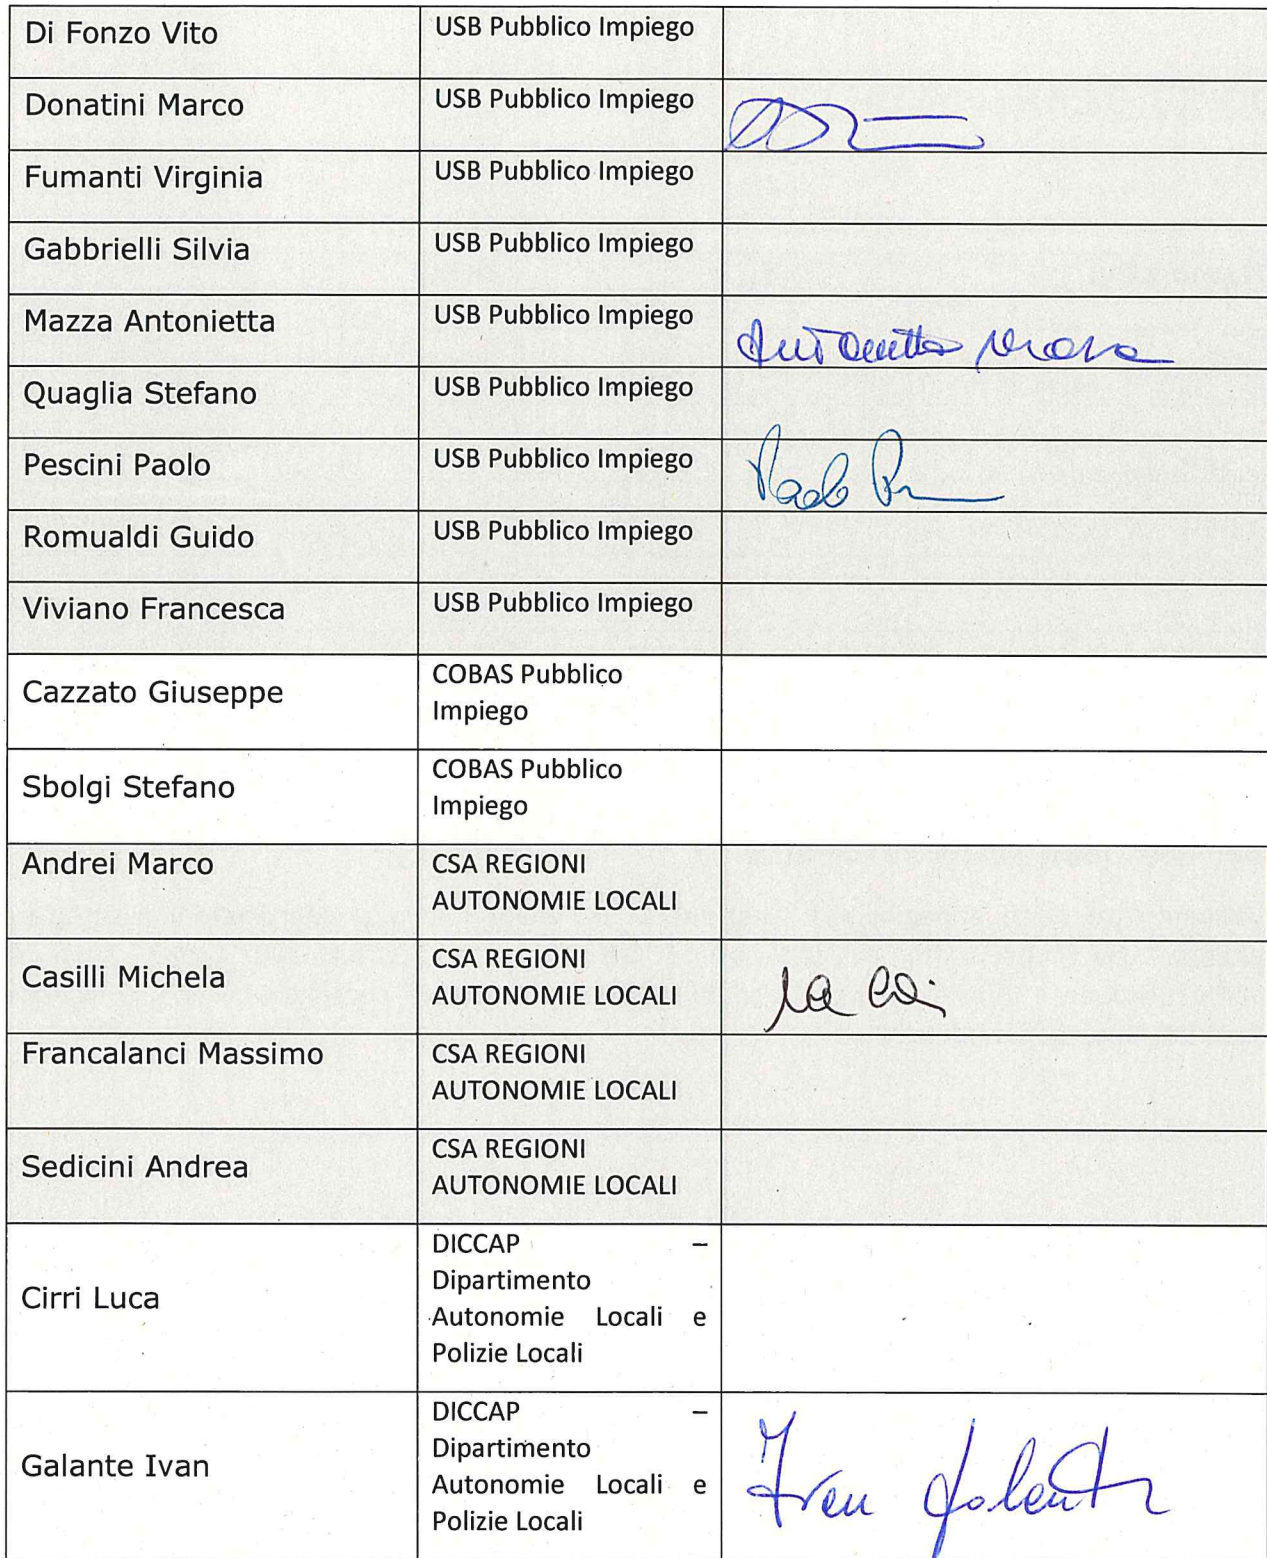 Di Fonzo Vito USB Pubblico Impiego
Donatini Marco USB Pubblico Impiego
Fumanti Virginia USB Pubblico Impiego
Gabbrielli Silvia USB Pubblico Impiego
Mazza Antonietta USB Pubblico Impiego Antonietta Mazza
Quaglia Stefano USB Pubblico Impiego
Pescini Paolo USB Pubblico Impiego Paolo
Romualdi Guido USB Pubblico Impiego
Viviano Francesca USB Pubblico Impiego
Cazzato Giuseppe COBAS Pubblico
Impiego
Sbolgi Stefano COBAS Pubblico
Impiego
Andrei Marco CSA REGIONI
AUTONOMIE LOCALI
Casilli Michela CSA REGIONI
AUTONOMIE LOCALI
Francalanci Massimo CSA REGIONI
AUTONOMIE LOCALI
Sedicini Andrea CSA REGIONI
AUTONOMIE LOCALI
Cirri Luca DICCAP –
Dipartimento
Autonomie Locali e
Polizie Locali
Galante Ivan DICCAP –
Dipartimento
Autonomie Locali e
Polizie Locali
Ivan Galante